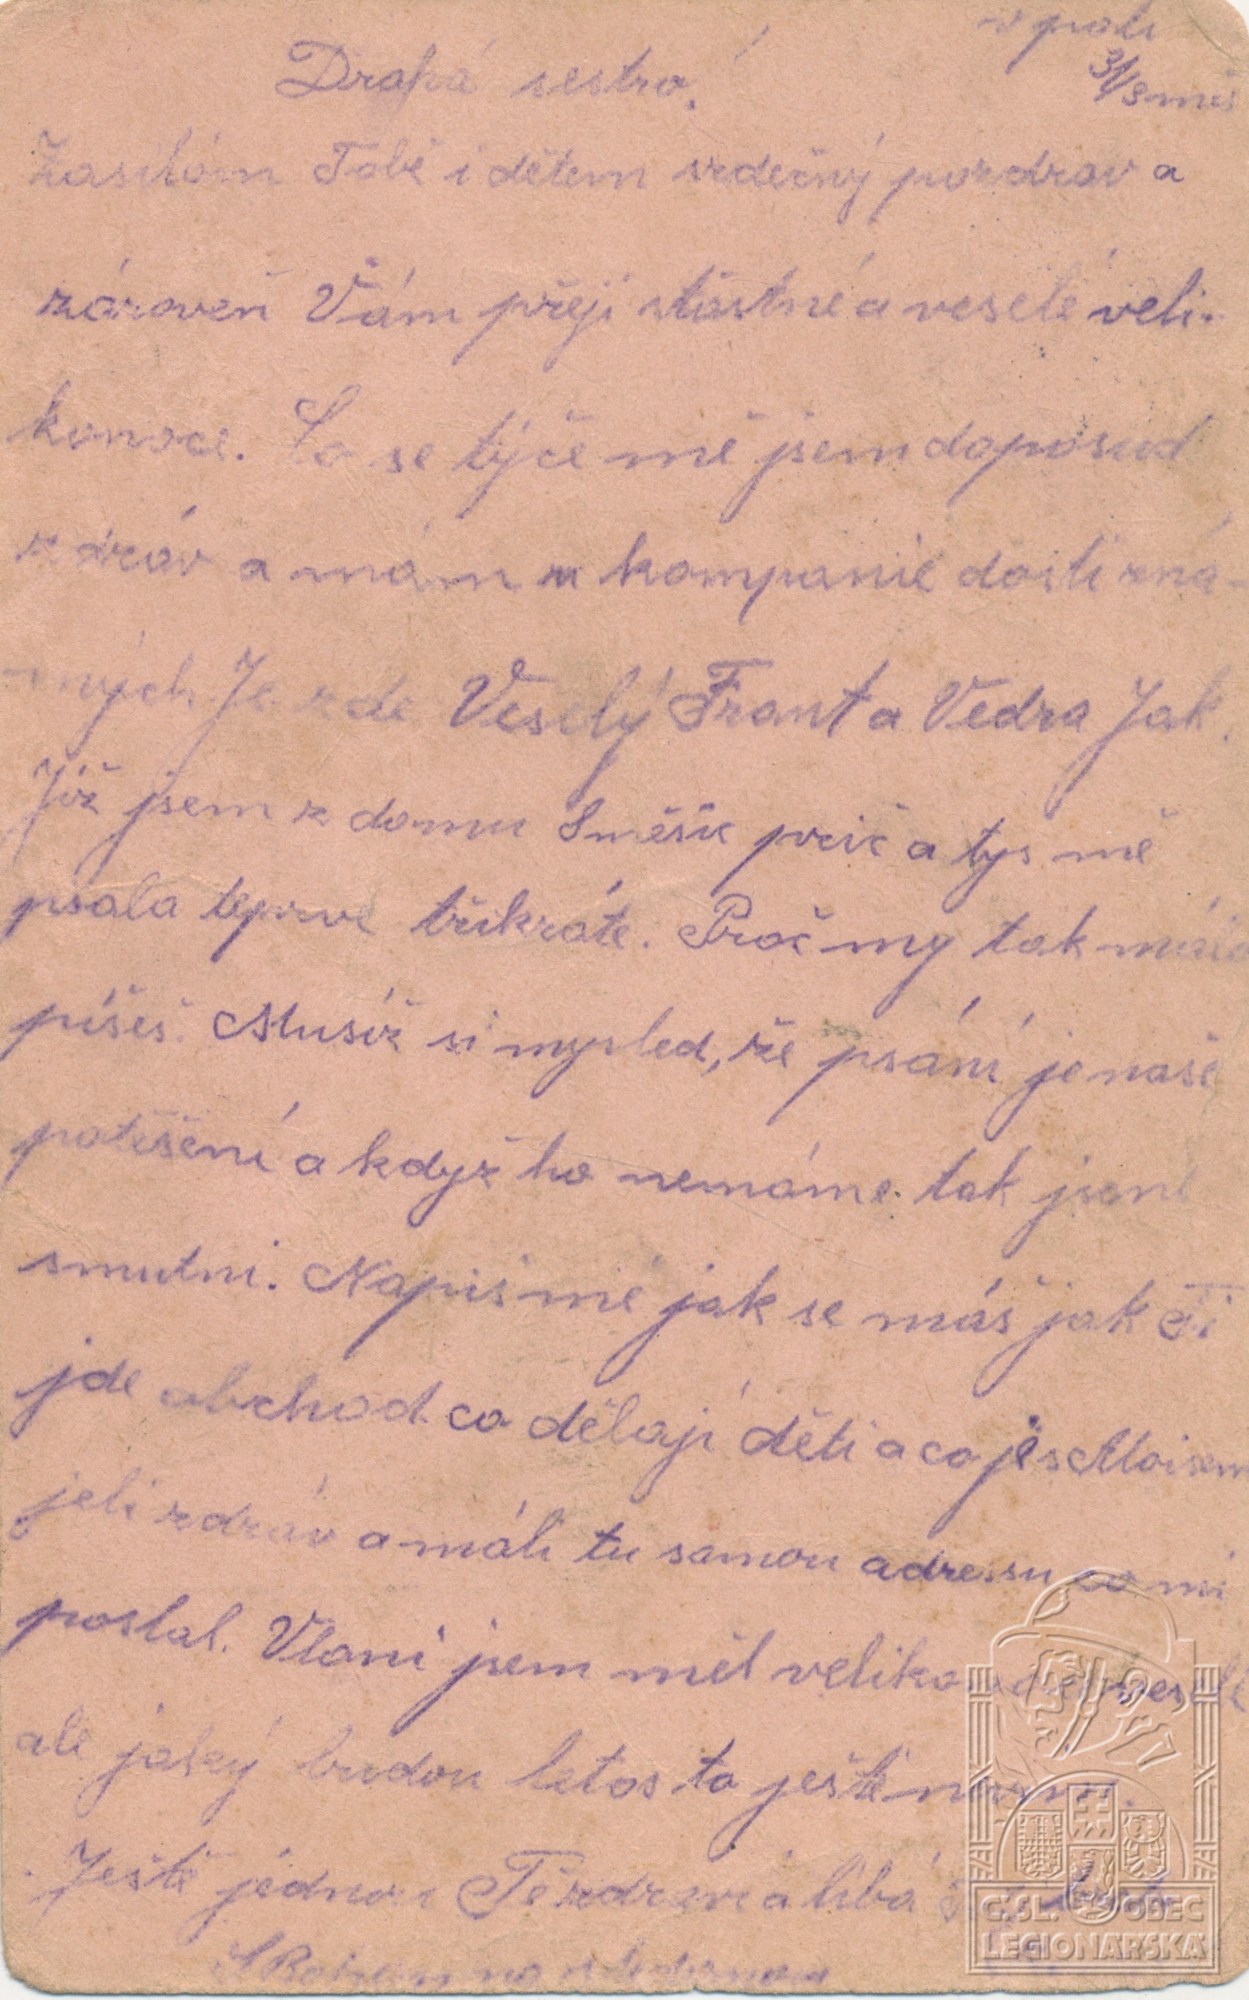 v poli
31/3
Drahá sestro!
Zasílám Tobě i dětem srdečný pozdrav a
zároveň Vám přeji štástné a veselé veli-
konoce. Co se týče mě jsem doposud
zdráv a mám u kompanie dosti zná-
mých Je zde Veselý Frant a Vedra Jak.
Již jsem z domu 8 měsíc prič a tys mě
psala teprve třikráte. Proč my tak málo
píšeš. Musíž si mysled, že psání je naše
potěšení a když ho nemáme tak jsme
smutni. Napiš mě jak se máš jak Ti
jde obchod co dělají děti a co je s Aloisem
jeli zdráv a máli tu samou adressu co mi
poslal. Vloni jsem měl veliko veselé
ale jaký budou letos to ještě nevím.
Ještě jednou Tě zdraví a líbá
S Bohem na shledanou
Č.SL. OBEC
LEGIONÁŘSKÁ